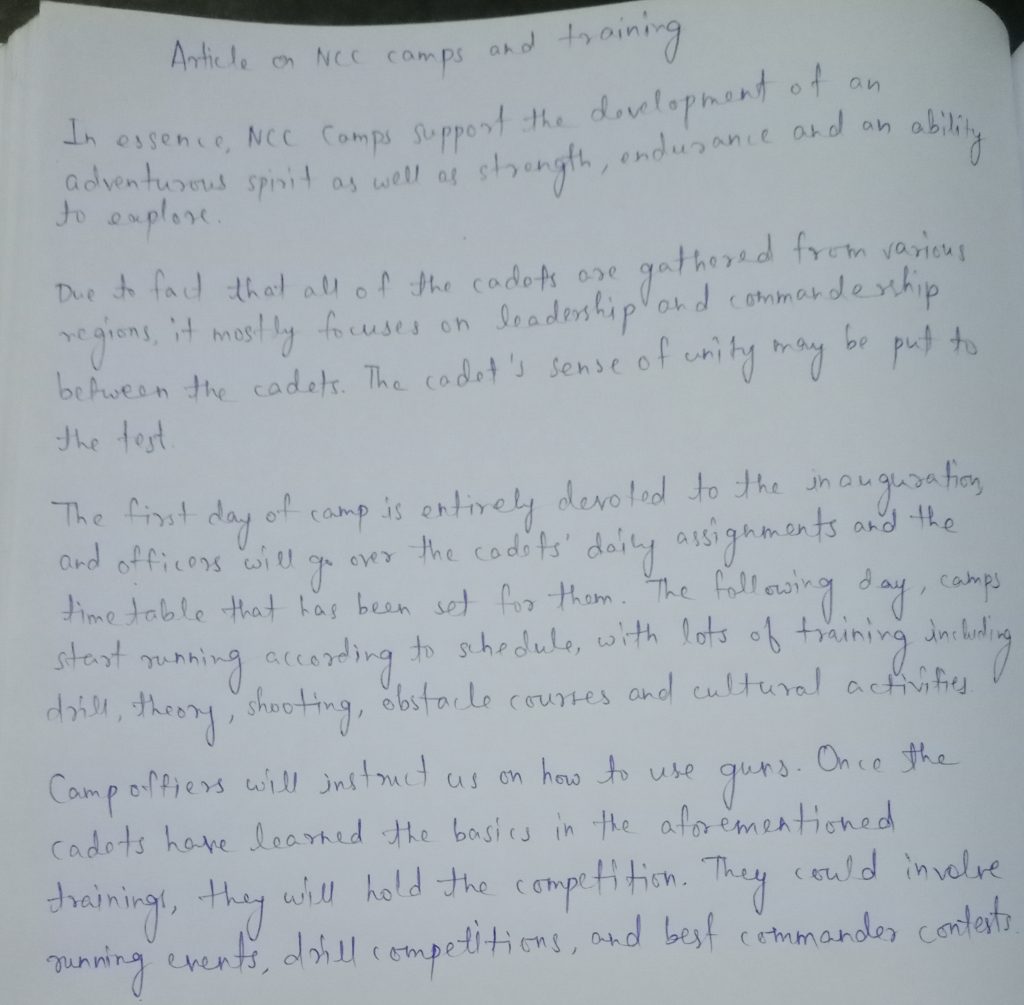 Article on NCC camps and training
In essence, NCC Camps support the development of an
adventurous spirit as well as strength, endurance and an ability
to explore.
Due to fact that all of the cadets are gathered from various
regions, it mostly focuses on leadership and commandership
between the cadets. The cadet's sense of unity may be put to
the test.
The first day of camp is entirely devoted to the inauguration,
and officers will go over the cadets' daily assignments and the
time table that has been set for them. The following day, camps
start running according to schedule, with lots of training including
drill, theory, shooting, obstacle courses and cultural activities.
Camp offiers will instruct us on how to use guns. Once the
cadets have learned the basics in the aforementioned
trainings, they will hold the competition. They could involve
running events, drill competitions, and best commander contests.